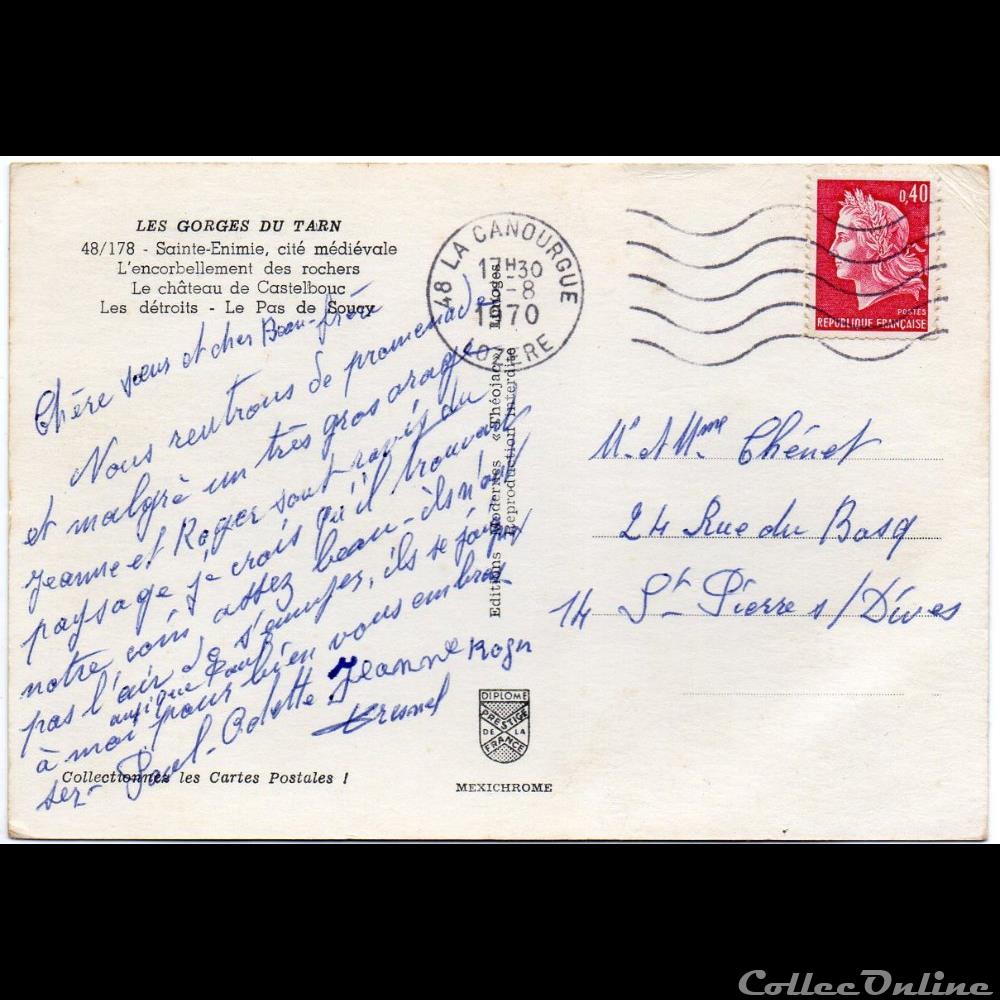 LES GORGES DU TARN
48/178 - Sainte-Enimie, cité médiévale
L'encorbellement des rochers
Le château de Castelbouc
Les détroits - Le Pas de Soucy
Chère sœur et cher Beau-frère
Nous rentrons de promenade
et malgré un très gros orage
Jeanne et Roger sont ravis du
paysage je crois qu'il trouvait
notre coin assez beau - ils n'ont
pas l'air de s'ennuyer, ils se joignent
aussi que Paul
à moi pour bien vous embras-
ser - Paul - Odette Jeanne Roger
Collectionnez les Cartes Postales !
Editions Modernes « Théojac » Limoges
Reproduction interdite
DIPLOME
PRESTIGE
DE LA
FRANCE
MEXICHROME
48 LA CANOURGUE
17H30
-8
1970
LOZERE
0,40
POSTES
REPUBLIQUE FRANÇAISE
Mr et Mme Chénet
24 Rue du Bosq
14 St Pierre s/Dives
ColleConline